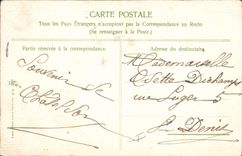 CARTE POSTALE
Tous les Pays Étrangers n'acceptent pas la Correspondance au Recto
(Se renseigner à la Poste)
Partie réservée à la correspondance.
Adresse du destinataire
Souvenir de
Mademoiselle
Odette
rue
St Denis